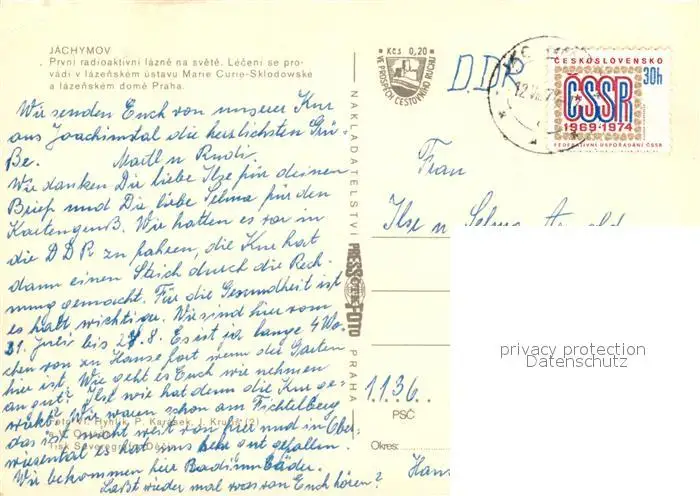 JÁCHYMOV
První radioaktivní lázně na světě. Léčení se pro-
vádí v lázeňském ústavu Marie Curie-Sklodowské
a lázeňském domě Praha.
Wir senden Euch von unserer Kur
aus Joachimstal die herzlichsten Grü-
ße. Martl u Rudi.
Wir danken Dir liebe Ilse für deinen
Brief und Dir liebe Selma für den
Kartengruß. Wir hatten es vor in
die DDR zu fahren, die Kur hat
dann einen Strich durch die Rech-
nung gemacht. Für die Gesundheit ist
es halt wichtiger. Wir sind hier vom
31. Juli bis 8. Es ist ja lange 4 Wo-
chen von zu Hause fort wenn die Garten
hier ist. Wie geht es Euch wir nehmen
an gut? Ilse wie hat denn die Kur ge-
wirkt? Wir waren schon am Fichtelberg
das ist nicht weit von hier und in Ober-
wiesental es hat uns sehr gut gefallen.
Wir bekommen hier Radiumbäder.
Laßt wieder mal was von Euch hören?
Foto P. Karásek, J.
Tisk Severografia Děčín
NAKLADATELSTVÍ
PRESSFOTO
PRAHA
Kčs 0,20
VE PROSPĚCH CESTOVNÍHO RUCHU
DDR
ČESKOSLOVENSKO
30h
ČSSR
1969-1974
FEDERATIVNÍ USPOŘÁDÁNÍ ČSSR
Frau
Ilse u Selma
1136
PSČ
Okres:
privacy protection
Datenschutz